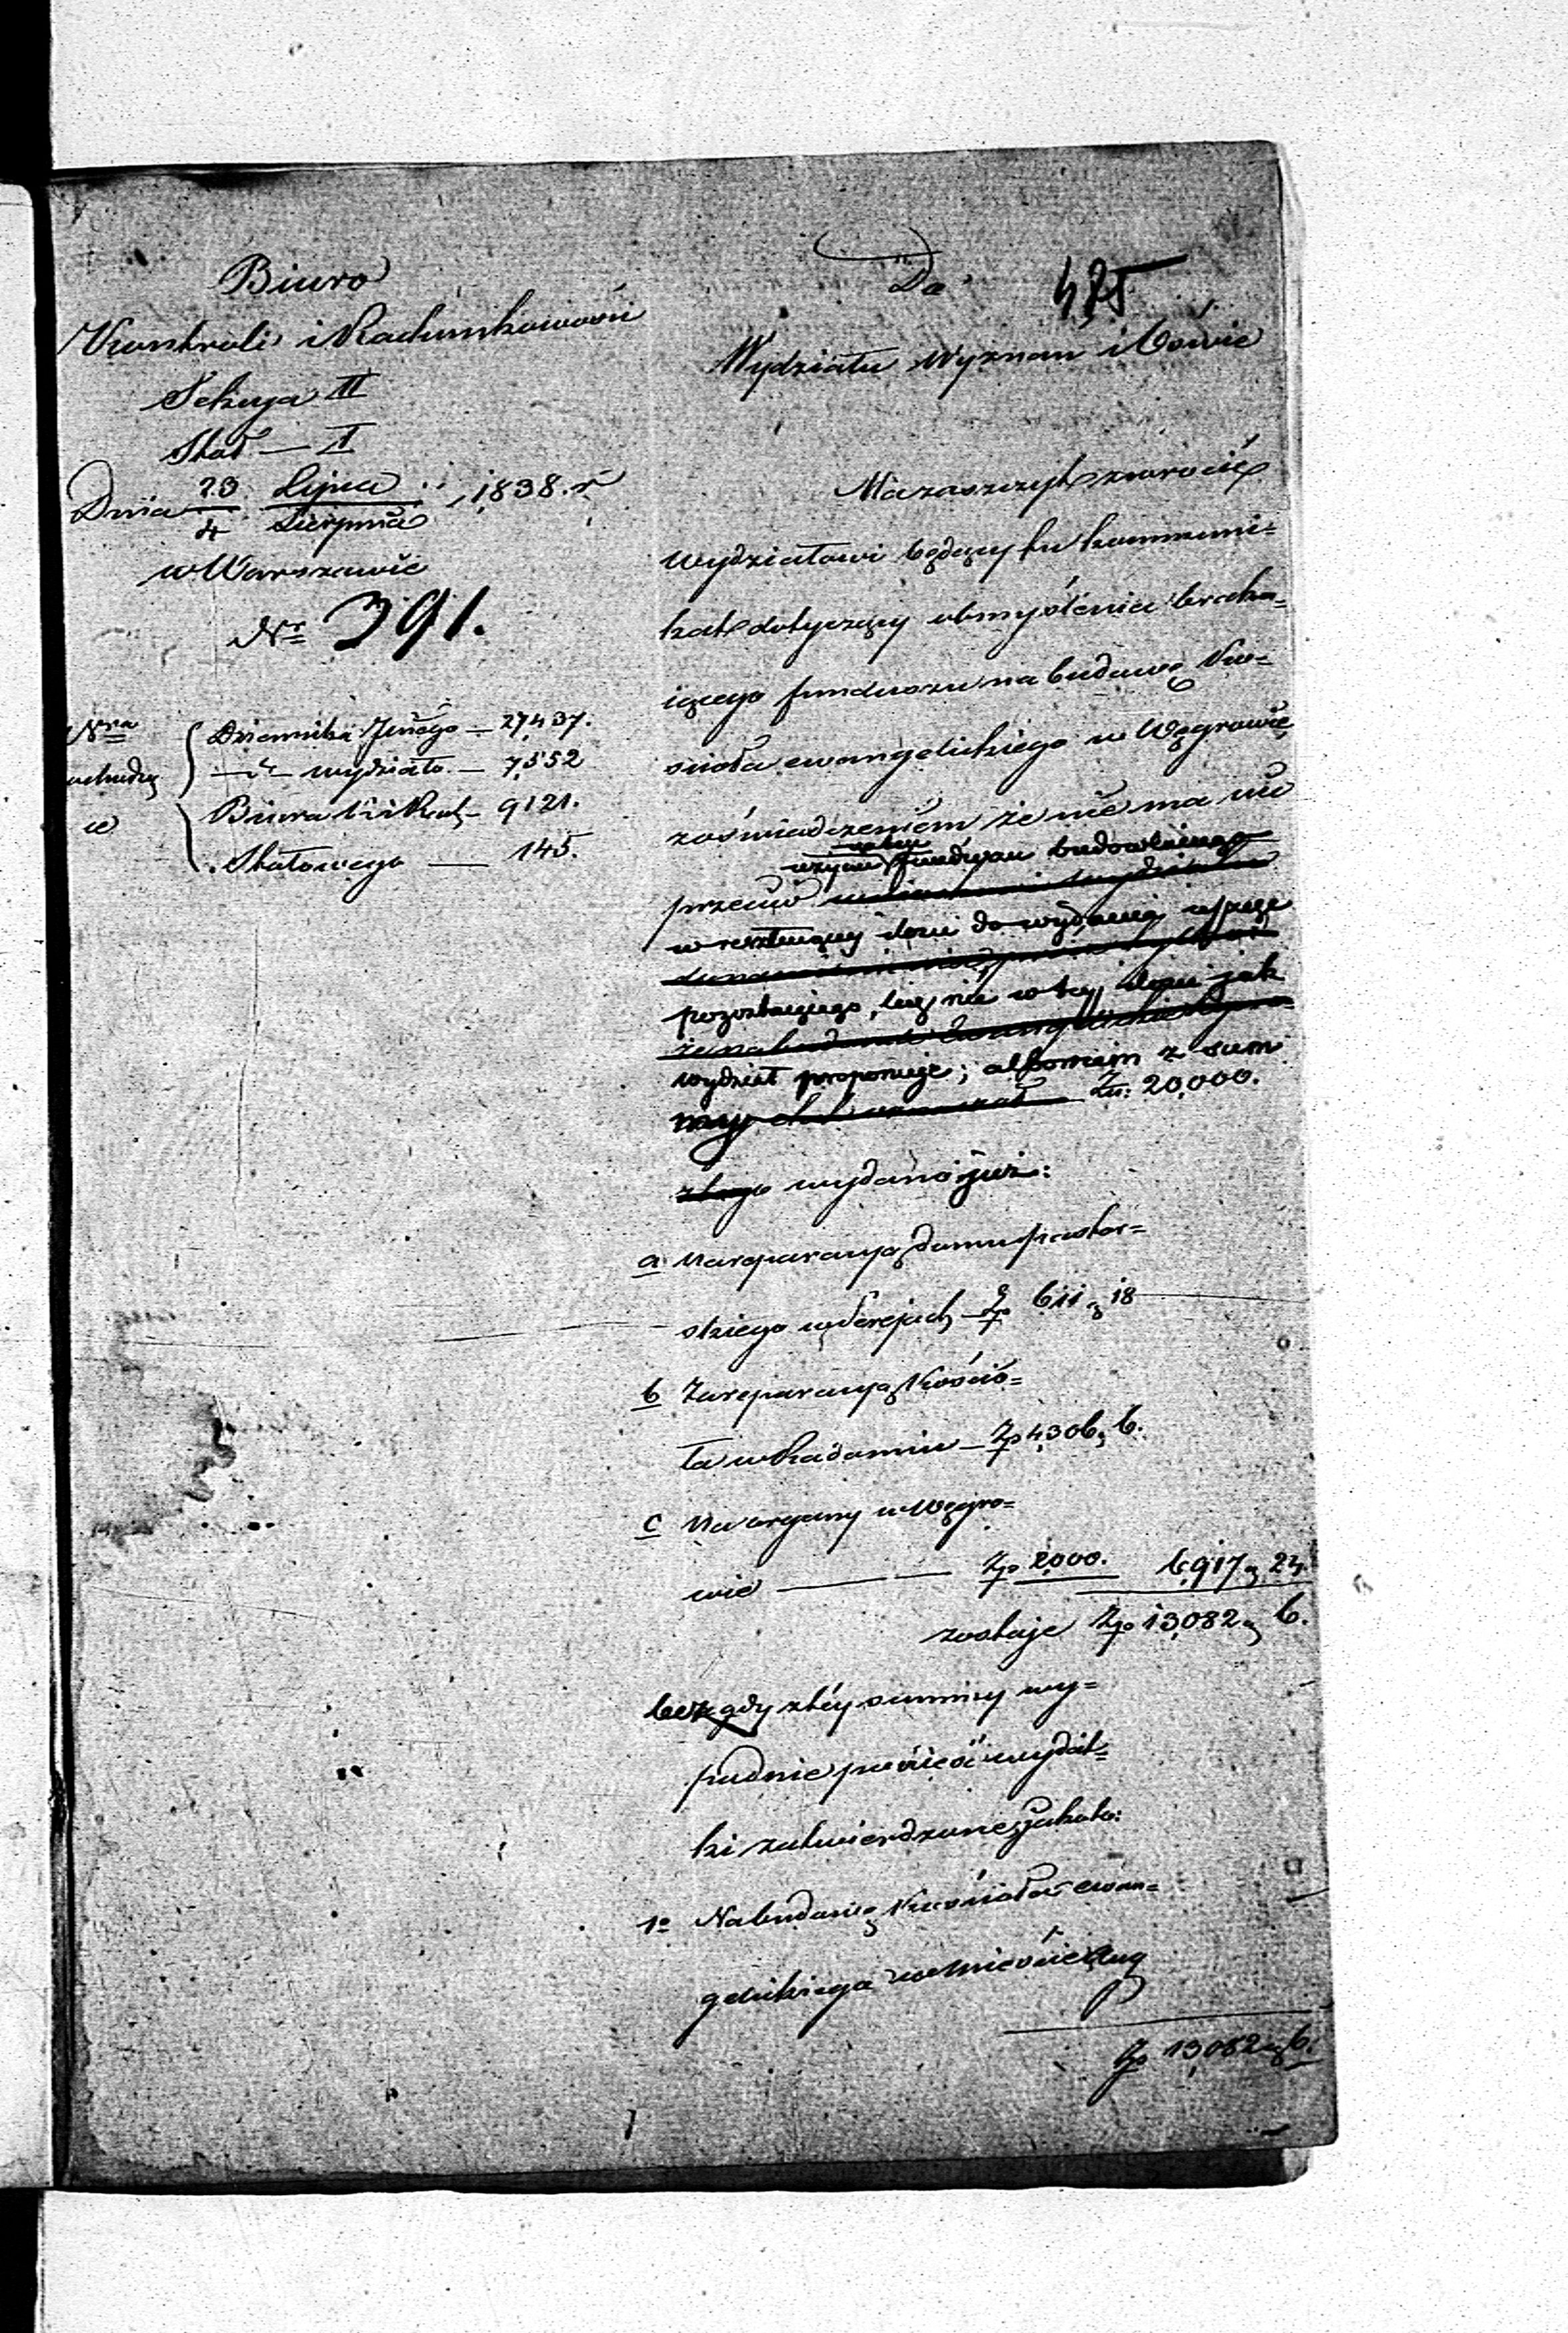 Biuro
Kontroli i Rachunkowości
Sekcya III
Stoł — I
Dnia 23 Lipca / 4 Sierpnia 1838. r
w Warszawie
Nr 391.
Nra
wchodzą
ce
Dziennika Jłnego — 27,437.
—d— wydziału — 7,552
Biura K i Rach — 9121.
Stołowego — 145.
Do
485
Wydziału Wyznań i Oświe
Ma zaszczyt zwrócić
wydziałowi będący tu kommuni=
kat dotyczący obmyślenia braku=
iącego funduszu na budowę Ko=
ścioła ewangelickiego w Węgrowie
z oświadczeniem że nie ma nic
użyciu funduszu budowlanego
przeciw
w resztującej ilości do wydania
pozostającego, lecz nie w tej ilości jak
wydział proponuje; albowiem z sum
my Zł: 20,000.
wydano już:
a Na reparacyą domu pastor=
skiego w Serejach — Zp 611 g 18
b Za reparacyą Kościo=
ła w Radomiu — Zp 4,306 g 6.
c Na organy w Węgro=
wie — Zp 2,000. 6,917 g 24.
zostaje Zp 13,082 g 6.
lecz gdy z téy summy wy=
padnie ponieść wydat=
ki zatwierdzone jakoto:
1o Na budowię Kościoła ewan=
gelickiego w Mieście Aug
Zp 13,082 g 6.